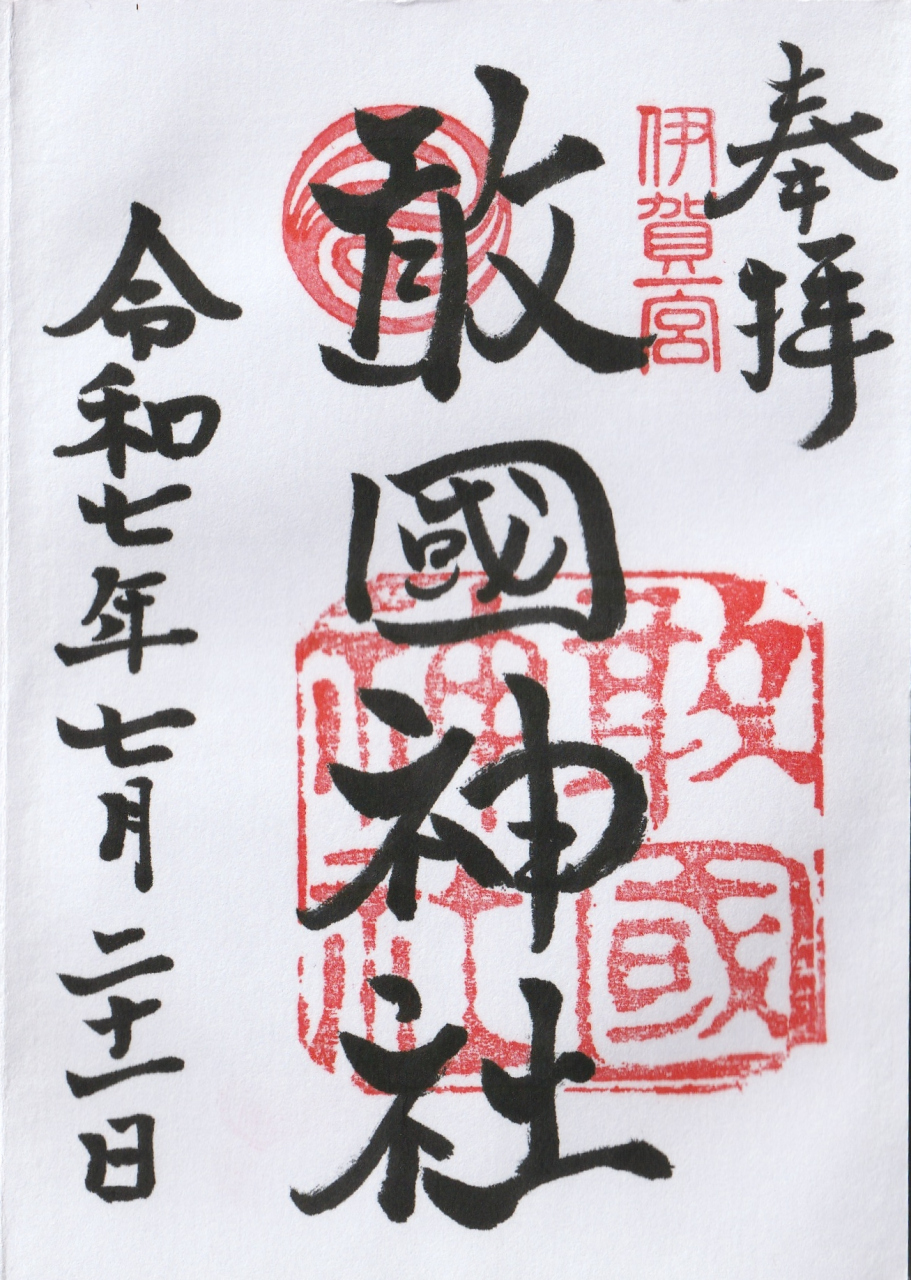 奉拝
伊賀一宮
敢國神社
敢國
神社
令和七年七月二十一日